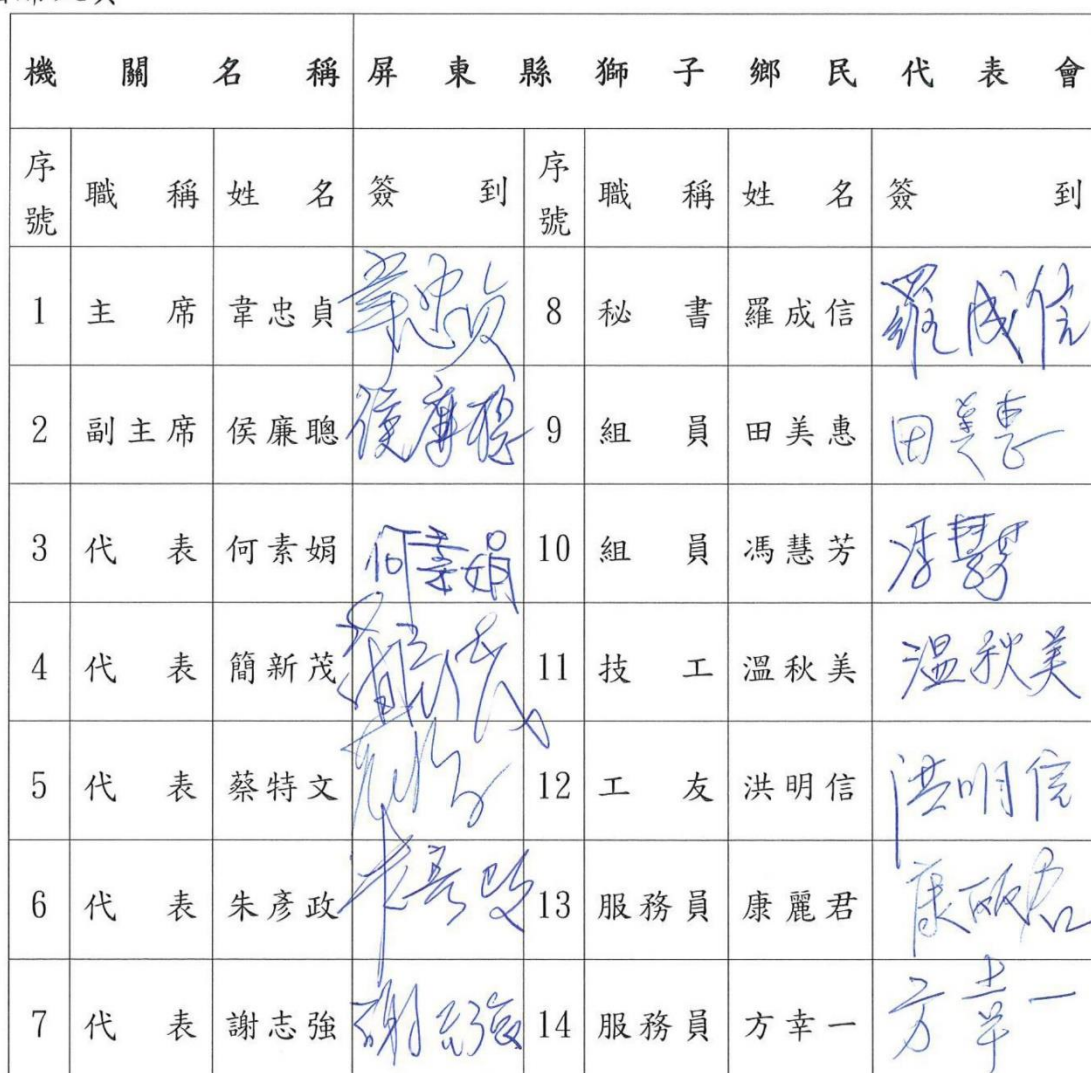 機關名稱 屏東縣獅子鄉民代表會
序號 職稱 姓名 簽到 序號 職稱 姓名 簽到
1 主席 韋忠貞 韋忠貞 8 秘書 羅成信 羅成信
2 副主席 侯廉聰 侯廉聰 9 組員 田美惠 田美惠
3 代表 何素娟 何素娟 10 組員 馮慧芳 馮慧芳
4 代表 簡新茂 11 技工 溫秋美 溫秋美
5 代表 蔡特文 12 工友 洪明信 洪明信
6 代表 朱彥政 朱彥政 13 服務員 康麗君 康麗君
7 代表 謝志強 謝志強 14 服務員 方幸一 方幸一